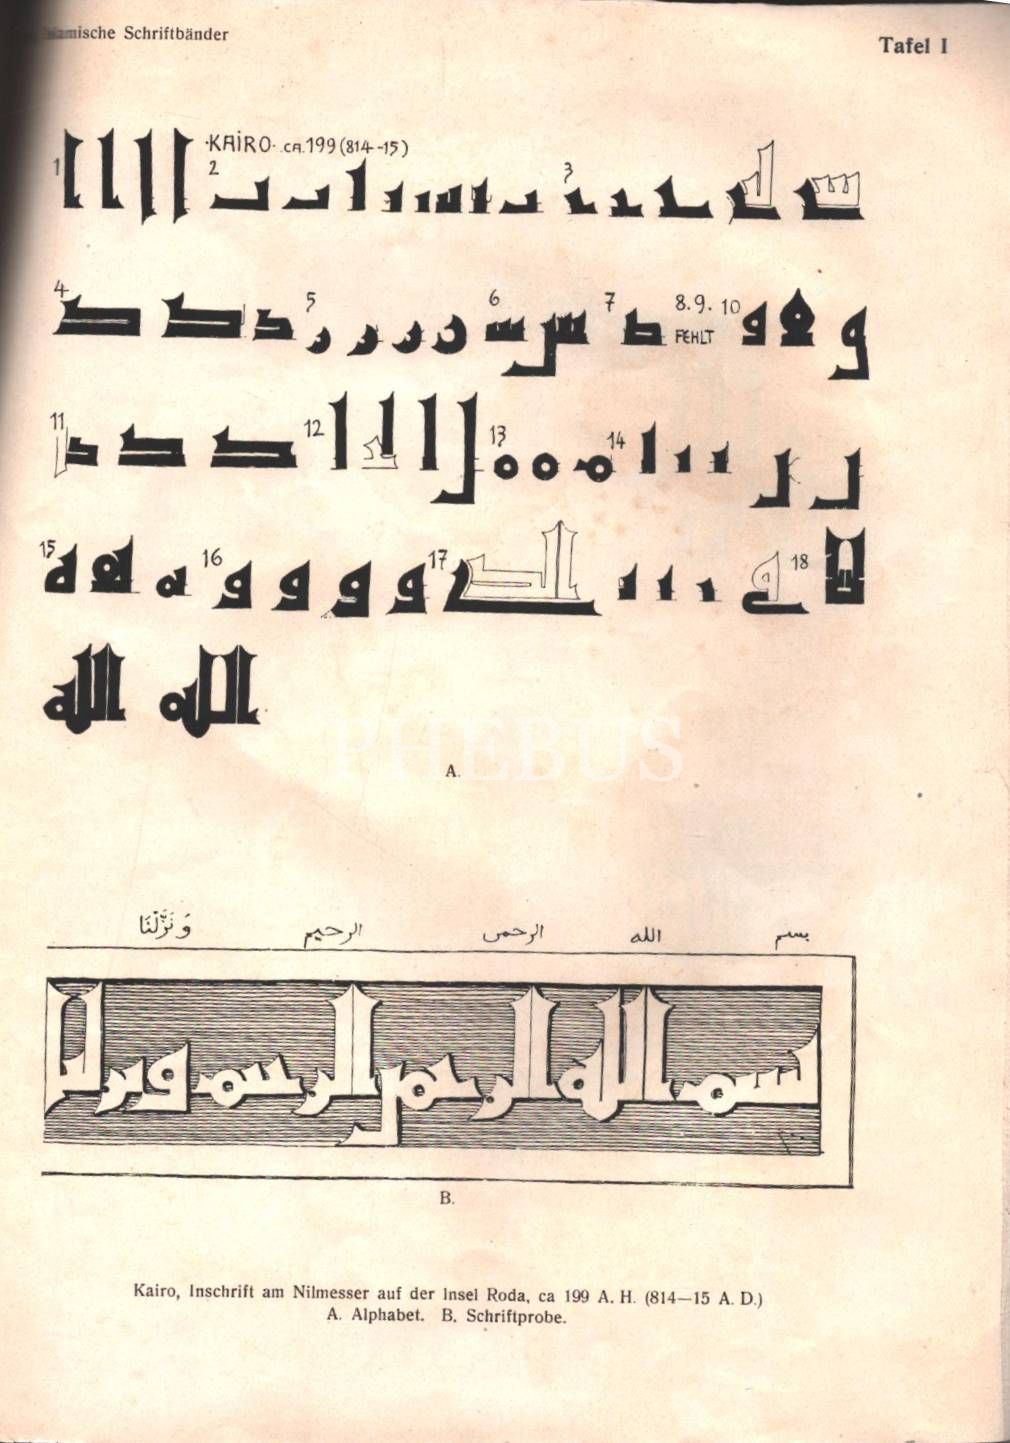 amische Schriftbänder
Tafel I
·KAIRO· ca. 199 (814-15)
1 2 3
4 5 6 7 8. 9. 10
FEHLT
11 12 13 14
15 16 17 18
الله الله
PHEBUS
A.
بسم الله الرحمن الرحيم وَنَزَّلْنَا
بسم الله الرحمن الرحيم ونزلنا
B.
Kairo, Inschrift am Nilmesser auf der Insel Roda, ca 199 A. H. (814—15 A. D.)
A. Alphabet. B. Schriftprobe.